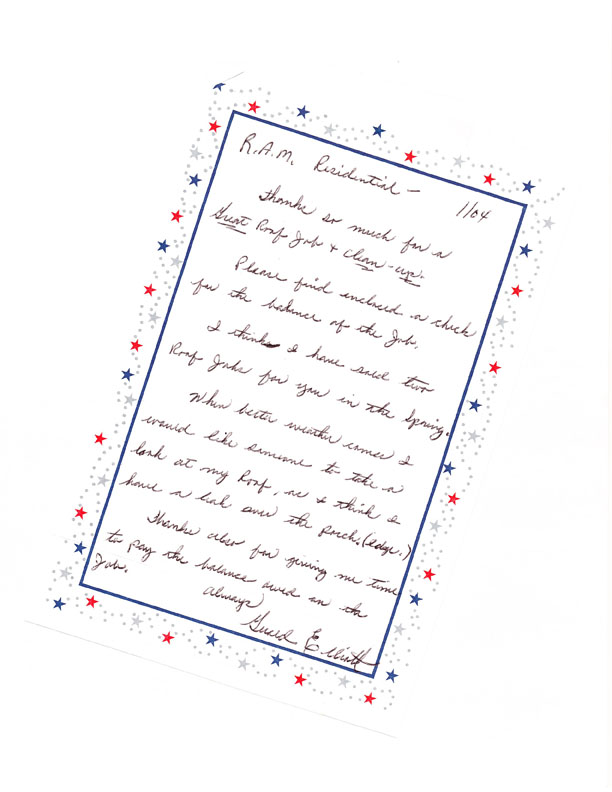 R.A.M. Residential —
1/04
Thanks so much for a
Great Roof Job & Clean-up.
Please find enclosed a check
for the balance of the Job.
I think I have said two
Roof Jobs for you in the Spring.
When better weather comes I
would like someone to take a
look at my Roof, as I think I
have a leak over the porch. (edge.)
Thanks also for giving me time
to pay the balance owed on the
Job.
Always,
Elliott